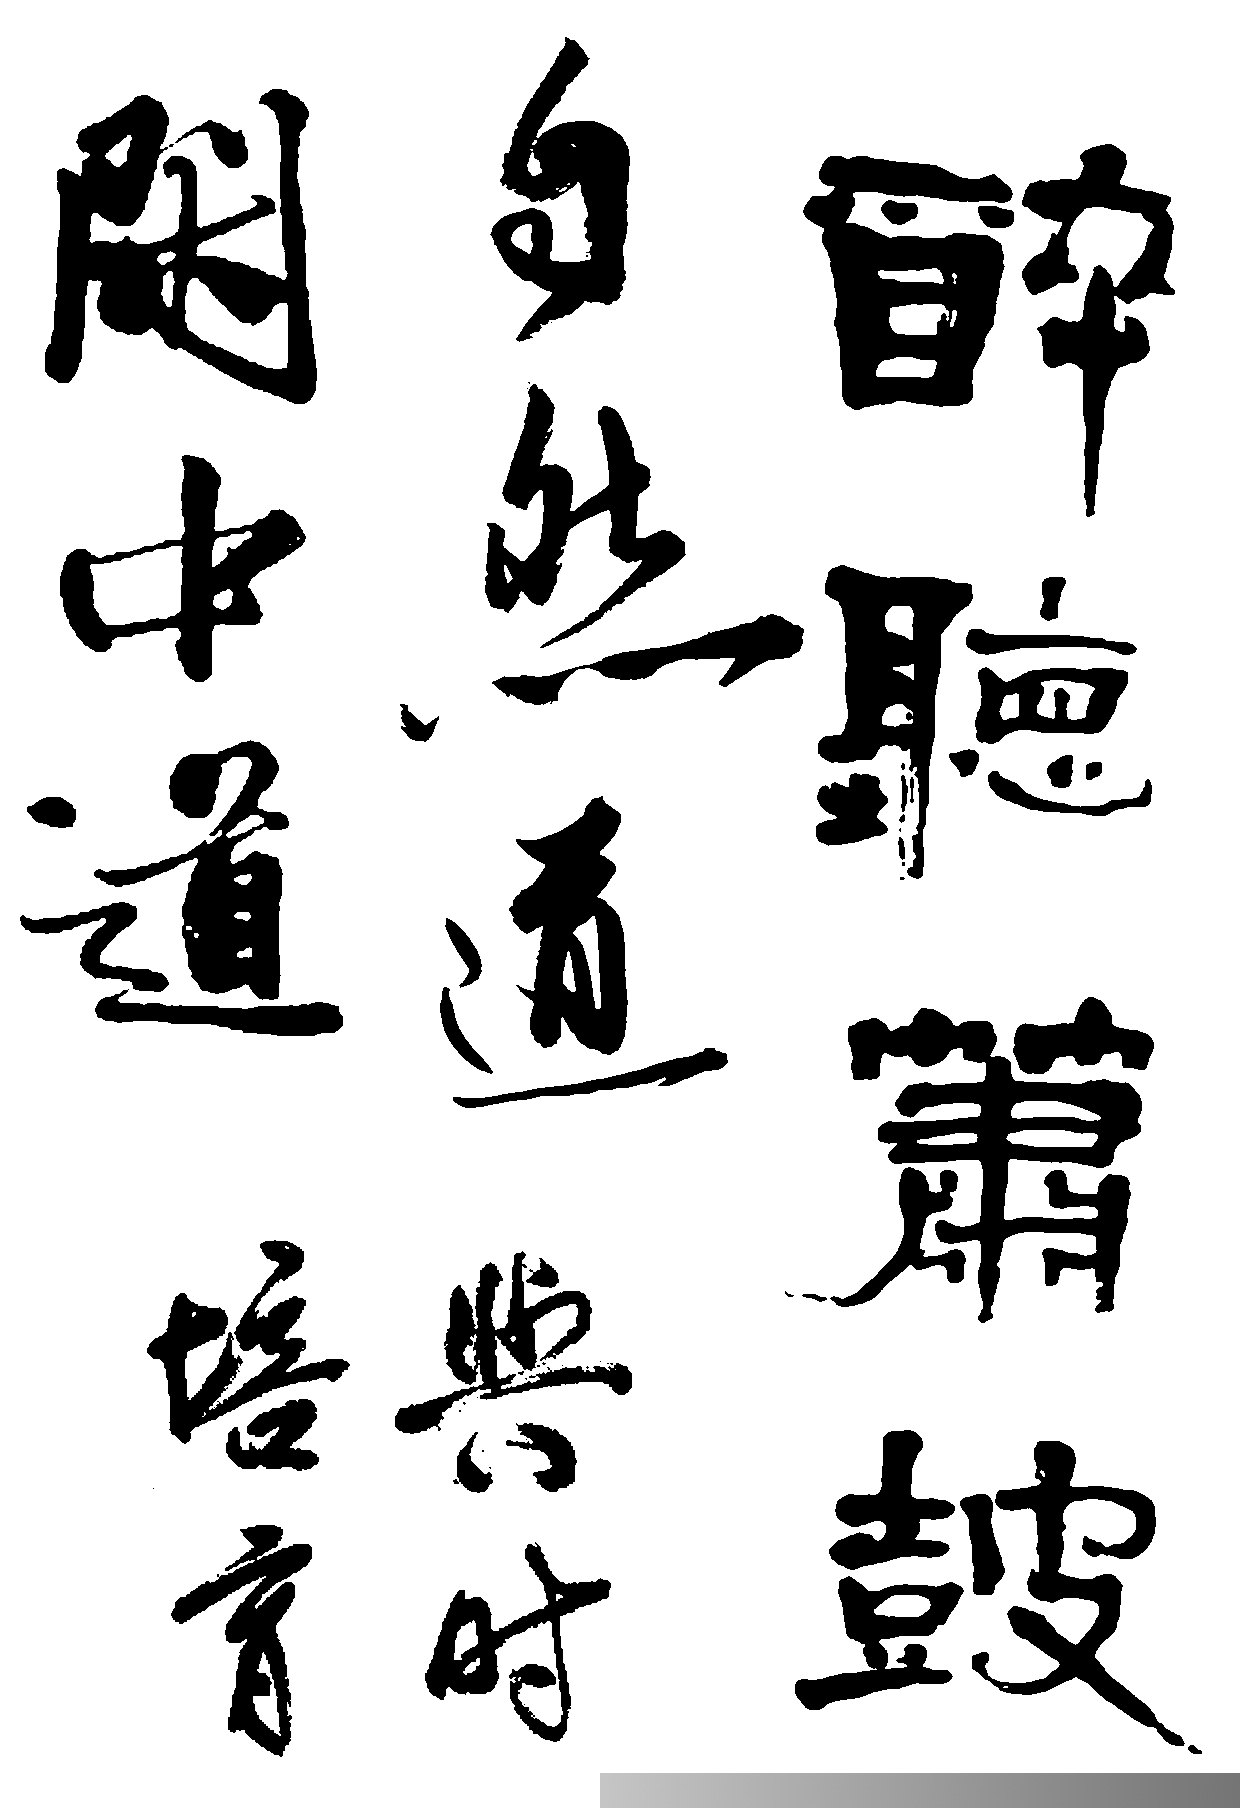 醉聽簫皷
自然道
與时
閑中道
培育